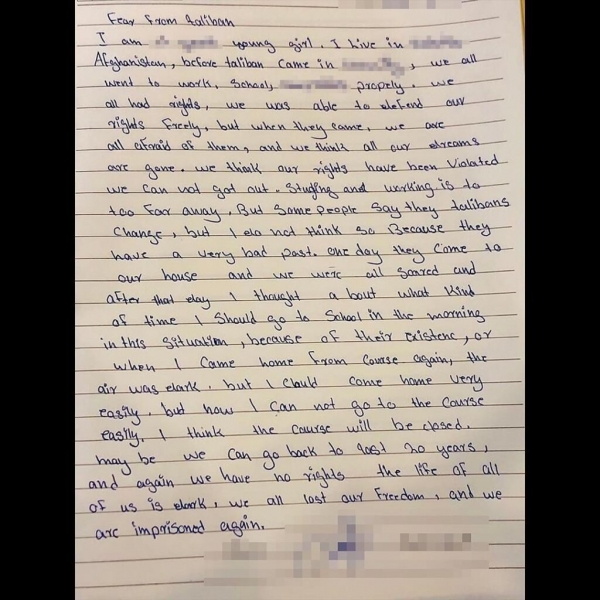 Fear from taliban
I am young girl. I live in
Afghanistan, before taliban came in , we all
went to work, School, propely. we
all had rights, we was able to defend our
rights freely, but when they came, we are
all afraid of them, and we think all our dreams
are gone. we think our rights have been Violated
we can not got out. Studing and working is to
too far away. But Some people Say they talibans
Change, but I do not think so Because they
have a very bad past. one day they Come to
our house and we were all Scared and
after that day I thought a bout what Kind
of time I Should go to School in the morning
in this Situation, because of their existenc, or
when I Came home from Course again, the
air was dark. but I Could come home very
easily. but now I Can not go to the Course
easily. I think the Course will be closed.
may be we Can go back to last 20 years,
and again we have no rights the life of all
of us is dark, we all lost our freedom, and we
are imprisoned again.